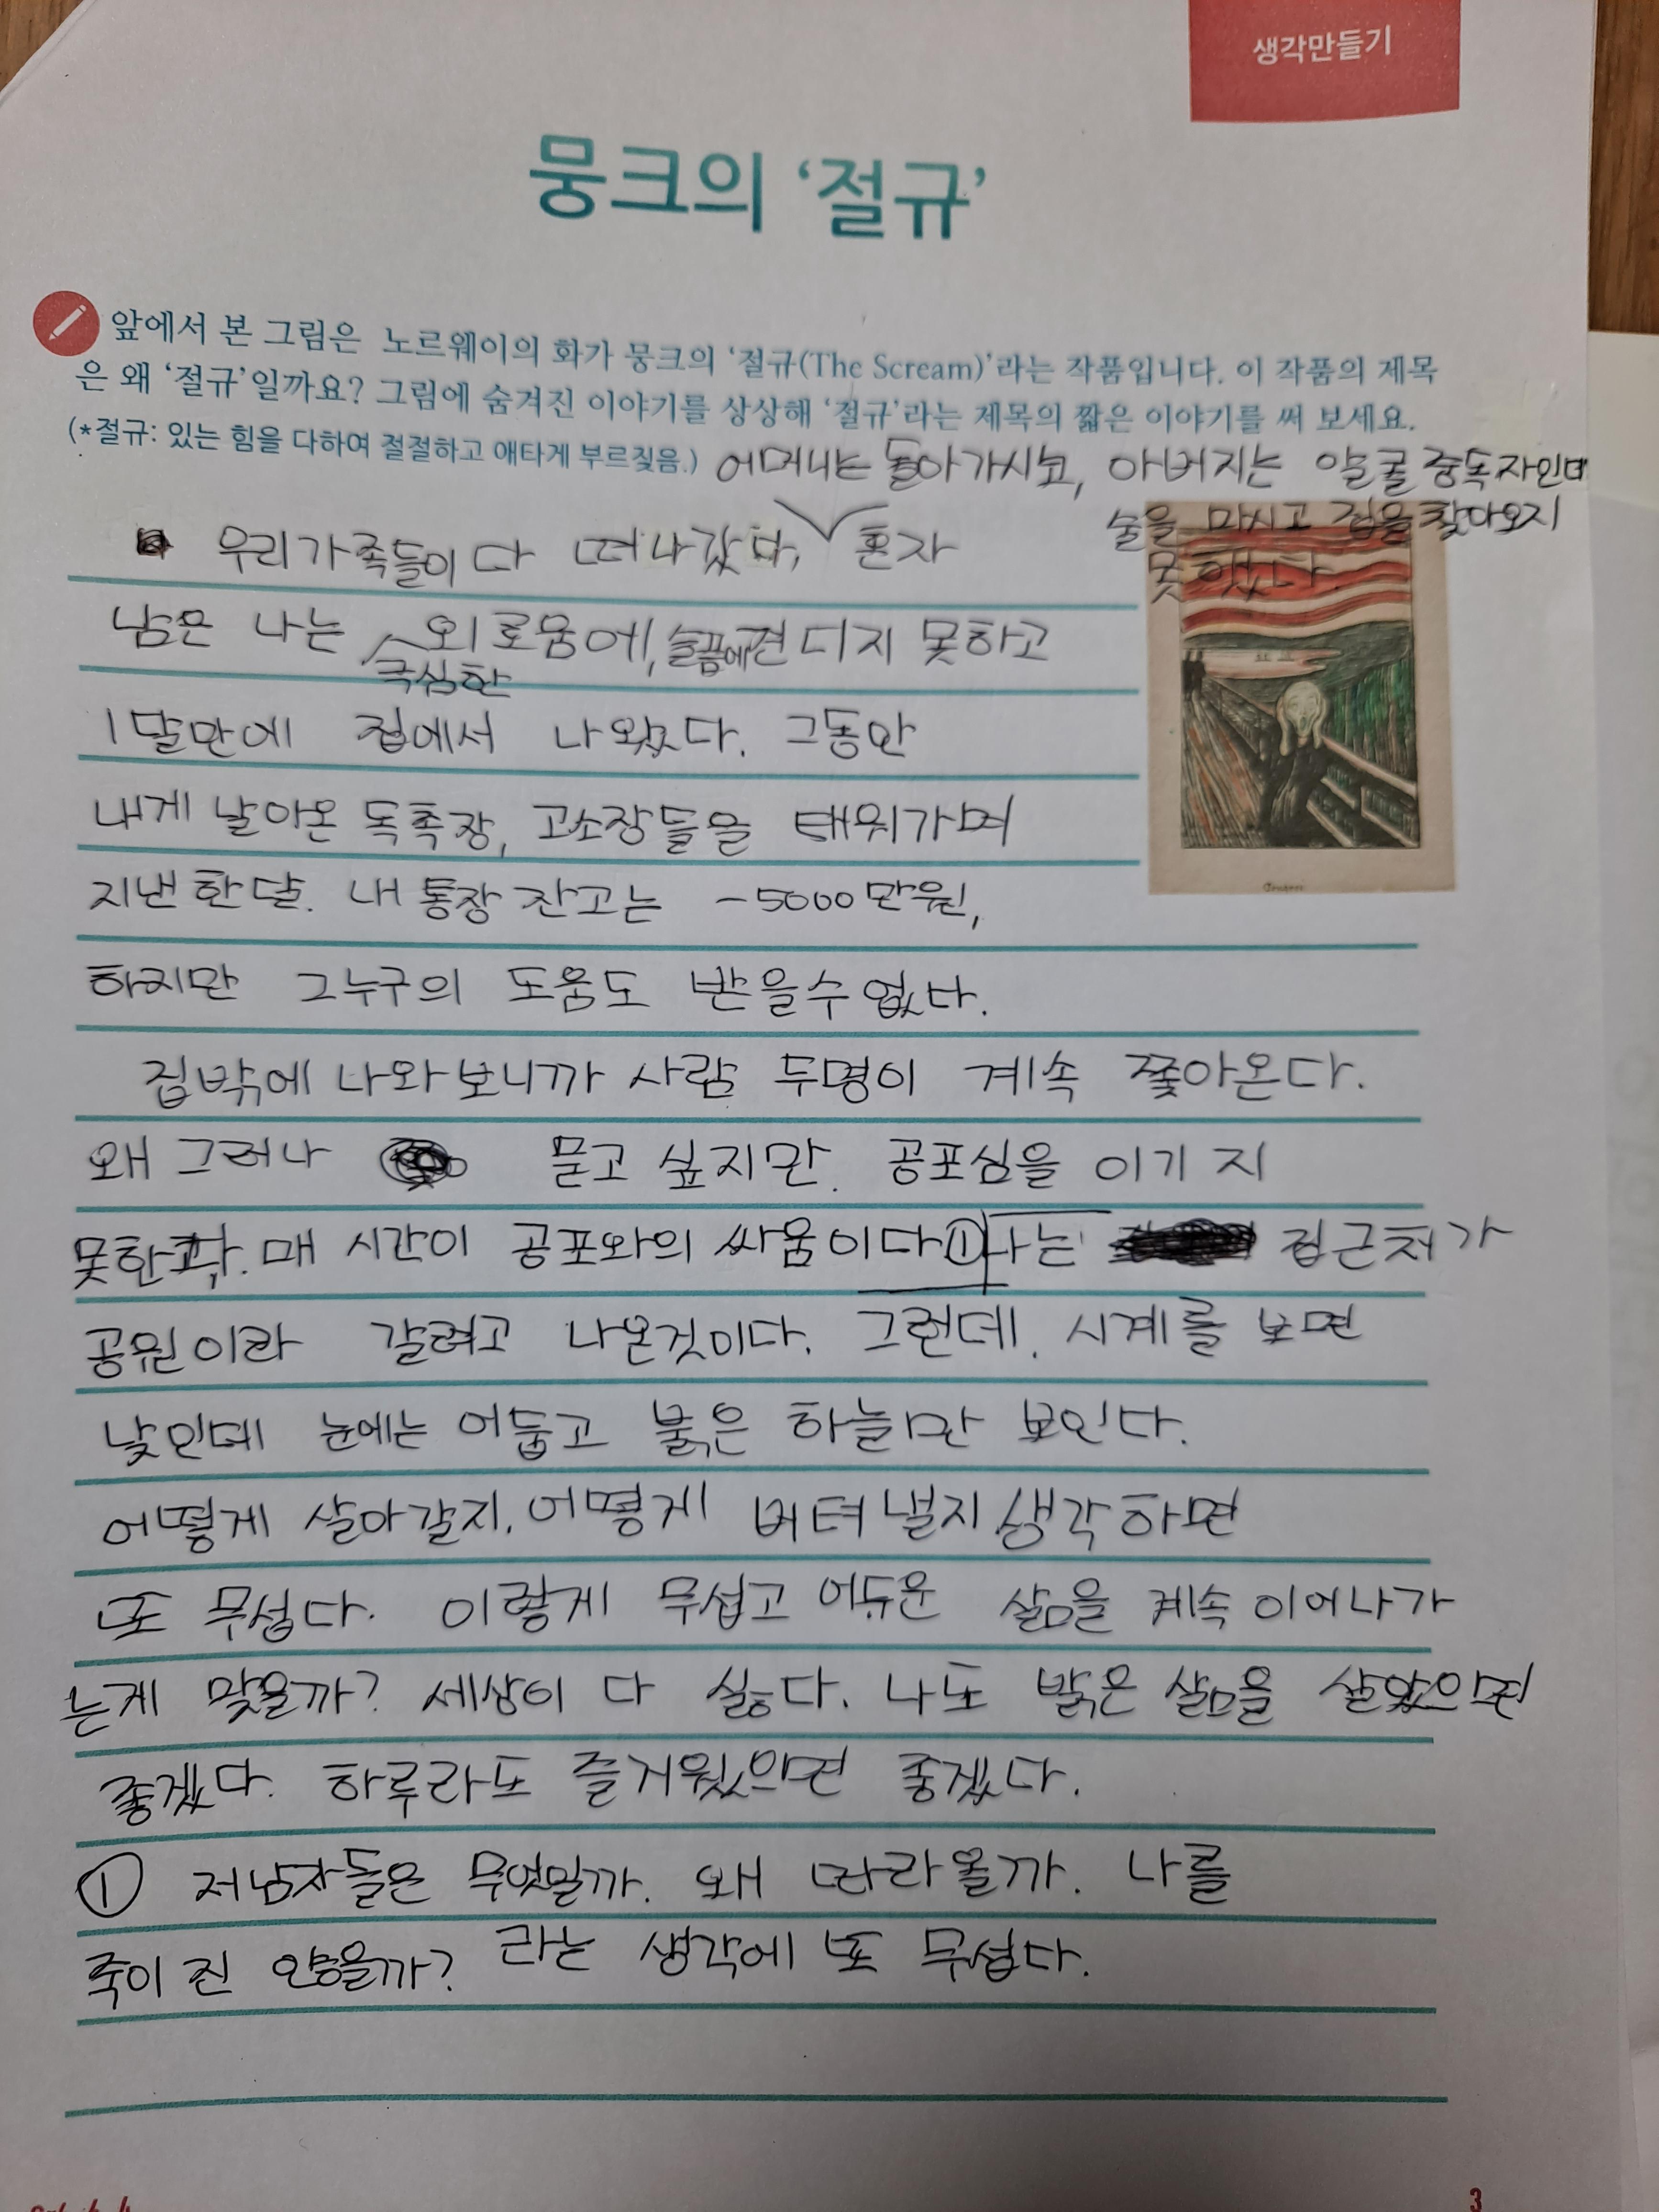 생각만들기
뭉크의 ‘절규’
앞에서 본 그림은 노르웨이의 화가 뭉크의 ‘절규(The Scream)’라는 작품입니다. 이 작품의 제목
은 왜 ‘절규’일까요? 그림에 숨겨진 이야기를 상상해 ‘절규’라는 제목의 짧은 이야기를 써 보세요.
(*절규: 있는 힘을 다하여 절절하고 애타게 부르짖음.)
어머니는 돌아가시고, 아버지는 알콜 중독자인데
술을 마시고 집을 찾아오지
못했다.
우리가족들이 다 떠나갔다, 혼자
남은 나는 외로움에, 슬픔에 견디지 못하고
극심한
1달만에 집에서 나왔다. 그동안
내게 날아온 독촉장, 고소장들을 태워가며
지낸 한달. 내 통장 잔고는 -5000만원,
하지만 그누구의 도움도 받을수 없다.
집밖에 나와보니까 사람 두명이 계속 쫓아온다.
왜 그러나 묻고 싶지만. 공포심을 이기지
못한다. 매 시간이 공포와의 싸움이다 ① 나는 집근처가
공원이라 갈려고 나온것이다. 그런데, 시계를 보면
낮인데 눈에는 어둡고 붉은 하늘만 보인다.
어떻게 살아갈지, 어떻게 버텨낼지 생각하면
또 무섭다. 이렇게 무섭고 어두운 삶을 계속 이어나가
는게 맞을까? 세상이 다 싫다. 나도 밝은 삶을 살았으면
좋겠다. 하루라도 즐거웠으면 좋겠다.
① 저남자들은 무엇일까. 왜 따라올까. 나를
죽이진 않을까? 라는 생각에 또 무섭다.
3